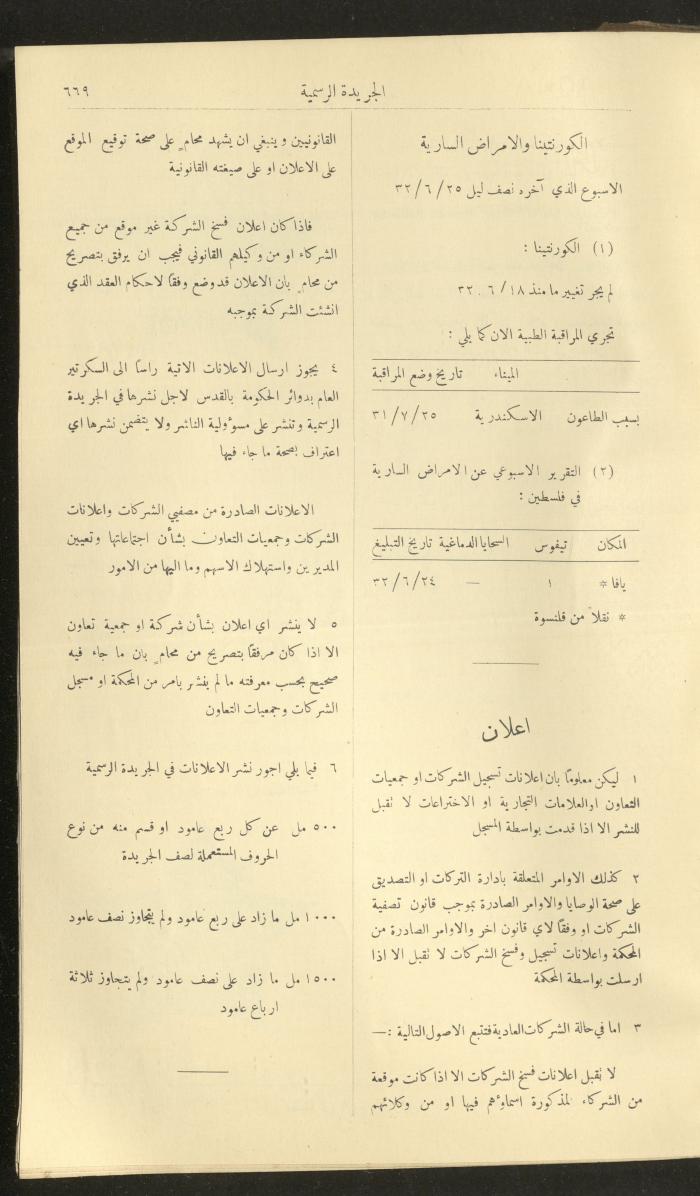 الجريدة الرسمية
٦٦٩
الكورنتينا والامراض السارية
الاسبوع الذي آخره نصف ليل ٢٥/ ٦ / ٣٢
(١) الكورنتينا :
لم يجر تغيير ما منذ ١٨/ ٦ . ٣٢
تجري المراقبة الطبية الان كما يلي :
الميناء تاريخ وضع المراقبة
بسبب الطاعون الاسكندرية ٢٥/ ٧ / ٣١
(٢) التقرير الاسبوعي عن الامراض السارية
في فلسطين :
المكان تيفوس السحايا الدماغية تاريخ التبليغ
يافا * ١ — ٢٤/ ٦ / ٣٢
* نقلاً من قلنسوة
اعلان
١ ليكن معلوماً بان اعلانات تسجيل الشركات او جمعيات
التعاون او العلامات التجارية او الاختراعات لا تقبل
للنشر الا اذا قدمت بواسطة المسجل
٢ كذلك الاوامر المتعلقة بادارة التركات او التصديق
على صحة الوصايا والاوامر الصادرة بموجب قانون تصفية
الشركات او وفقاً لاي قانون اخر والاوامر الصادرة من
المحكمة واعلانات تسجيل وفسخ الشركات لا تقبل الا اذا
ارسلت بواسطة المحكمة
٣ اما في حالة الشركات العادية فتتبع الاصول التالية :—
لا تقبل اعلانات فسخ الشركات الا اذا كانت موقعة
من الشركاء المذكورة اسماؤهم فيها او من وكلائهم
القانونيين وينبغي ان يشهد محامٍ على صحة توقيع الموقع
على الاعلان او على صيغته القانونية
فاذا كان اعلان فسخ الشركة غير موقع من جميع
الشركاء او من وكيلهم القانوني فيجب ان يرفق بتصريح
من محامٍ بان الاعلان قد وضع وفقاً لاحكام العقد الذي
انشئت الشركة بموجبه
٤ يجوز ارسال الاعلانات الاتية راساً الى السكرتير
العام بدوائر الحكومة بالقدس لاجل نشرها في الجريدة
الرسمية وتنشر على مسؤولية الناشر ولا يتضمن نشرها اي
اعتراف بصحة ما جاء فيها
الاعلانات الصادرة من مصفيي الشركات واعلانات
الشركات وجمعيات التعاون بشأن اجتماعاتها وتعيين
المديرين واستهلاك الاسهم وما اليها من الامور
٥ لا ينشر اي اعلان بشأن شركة او جمعية تعاون
الا اذا كان مرفقاً بتصريح من محامٍ بان ما جاء فيه
صحيح بحسب معرفته ما لم ينشر بامر من المحكمة او مسجل
الشركات وجمعيات التعاون
٦ فيما يلي اجور نشر الاعلانات في الجريدة الرسمية
٥٠٠ مل عن كل ربع عامود او قسم منه من نوع
الحروف المستعملة لصف الجريدة
١٠٠٠ مل ما زاد على ربع عامود ولم يتجاوز نصف عامود
١٥٠٠ مل ما زاد على نصف عامود ولم يتجاوز ثلاثة
ارباع عامود